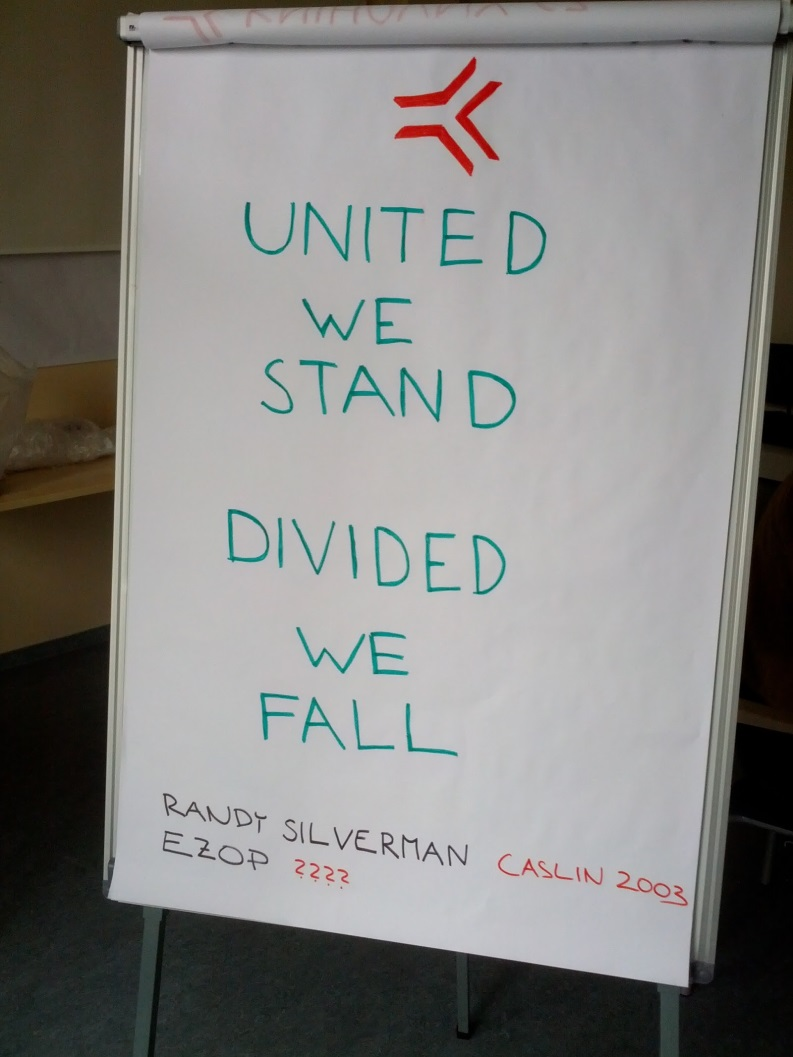 UNITED
WE
STAND
DIVIDED
WE
FALL
RANDY SILVERMAN CASLIN 2003
EZOP ????